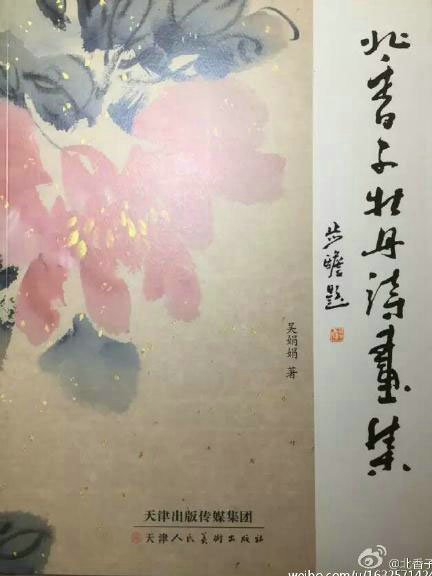 北香子牡丹诗畫集
步瞻题
吴娟娟 著
天津出版传媒集团
天津人民美術出版社
@北香子
weibo.com/u/1632571424